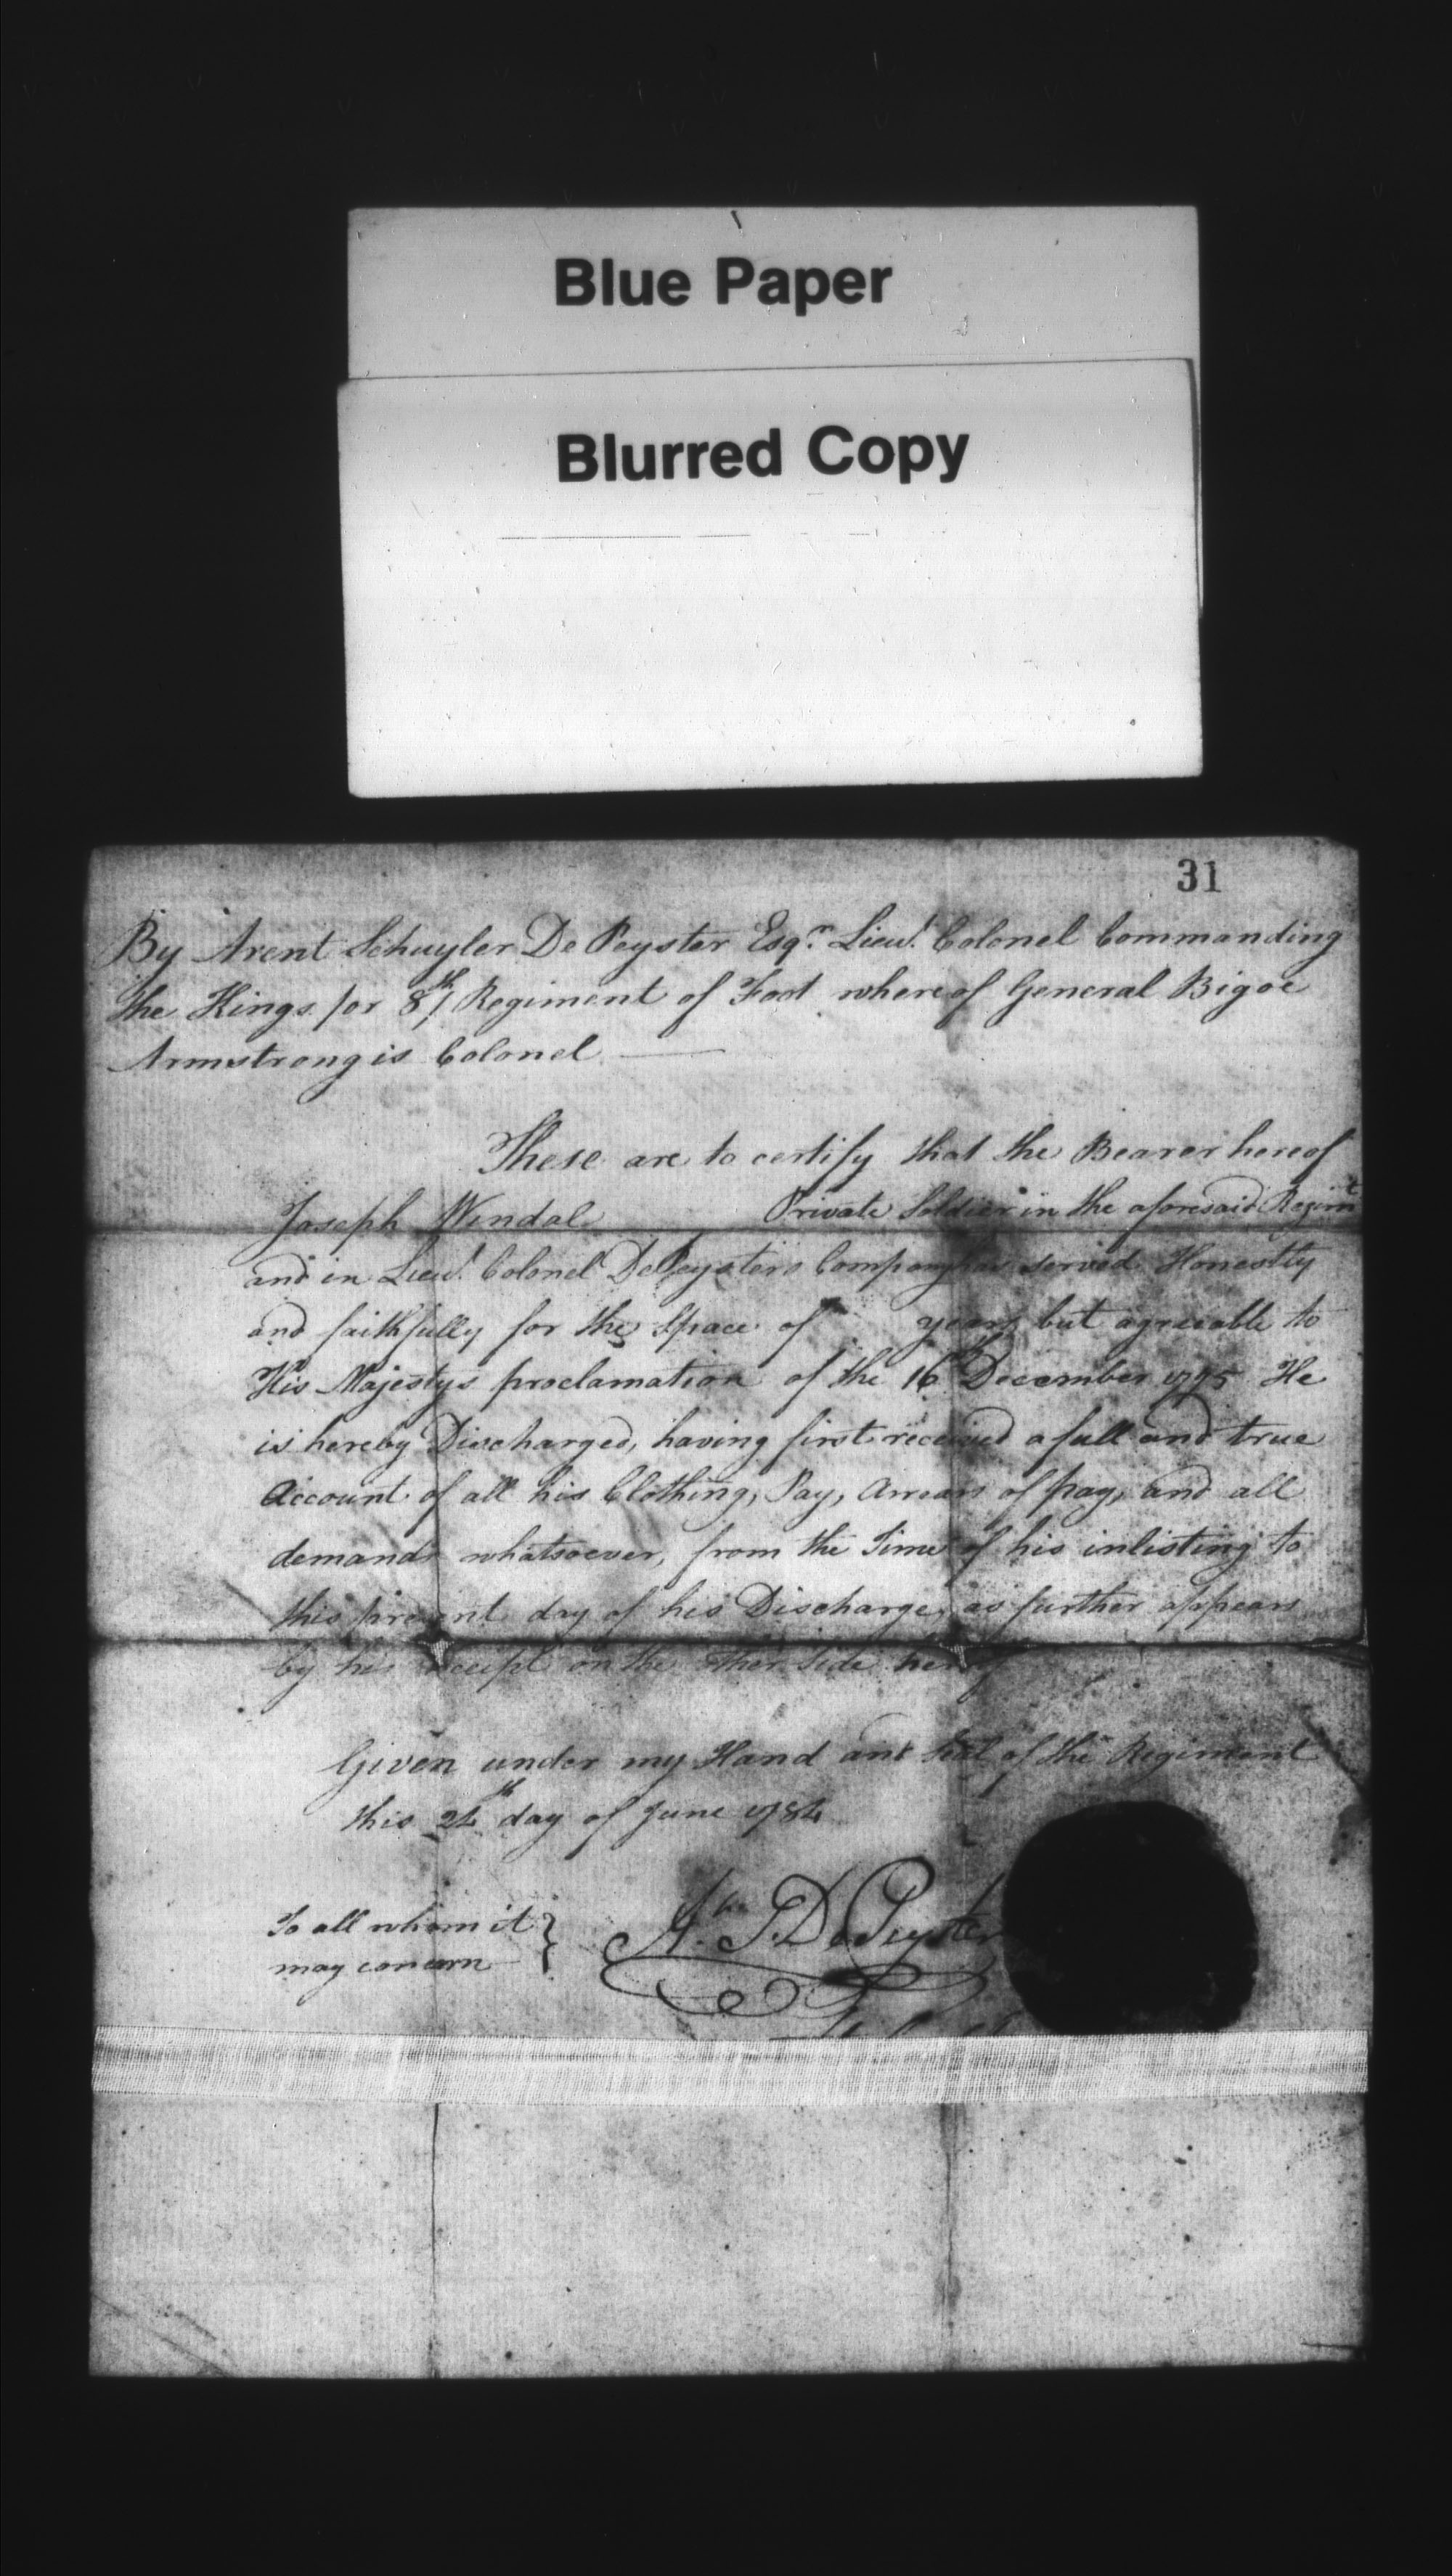 Blue Paper
Blurred Copy
31
By Arent Schuyler De Peyster Esqr. Lieut. Colonel Commanding
the Kings /or 8th/ Regiment of Foot whereof General Bigoe
Armstrong is Colonel
These are to certify that the Bearer hereof
Joseph Windal Private Soldier in the aforesaid Regimt
and in Lieut. Colonel DePeysters Company has served Honestly
and faithfully for the Space of years but agreeable to
His Majestys proclamation of the 16th December 1775 He
is hereby Discharged, having first received a full and true
Account of all his Clothing, Pay, Arrears of pay, and all
demands whatsoever, from the Time of his inlisting to
this present day of his Discharge, as further appears
by his receipt on the other side hereof
Given under my Hand and Seal of the Regiment
this 24th day of June 1784
To all whom it
may concern
At. S. De Peyster